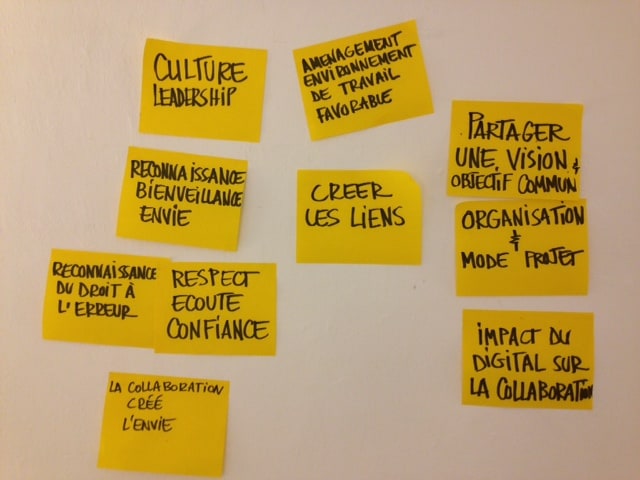 CULTURE
LEADERSHIP
AMENAGEMENT
ENVIRONNEMENT
DE TRAVAIL
FAVORABLE
PARTAGER
UNE VISION &
OBJECTIF COMMUN
RECONNAISSANCE
BIENVEILLANCE
ENVIE
CREER
LES LIENS
ORGANISATION
&
MODE PROJET
RECONNAISSANCE
DU DROIT À
L'ERREUR
RESPECT
ECOUTE
CONFIANCE
IMPACT DU
DIGITAL SUR
LA COLLABORATION
LA COLLABORATION
CRÉÉ
L'ENVIE